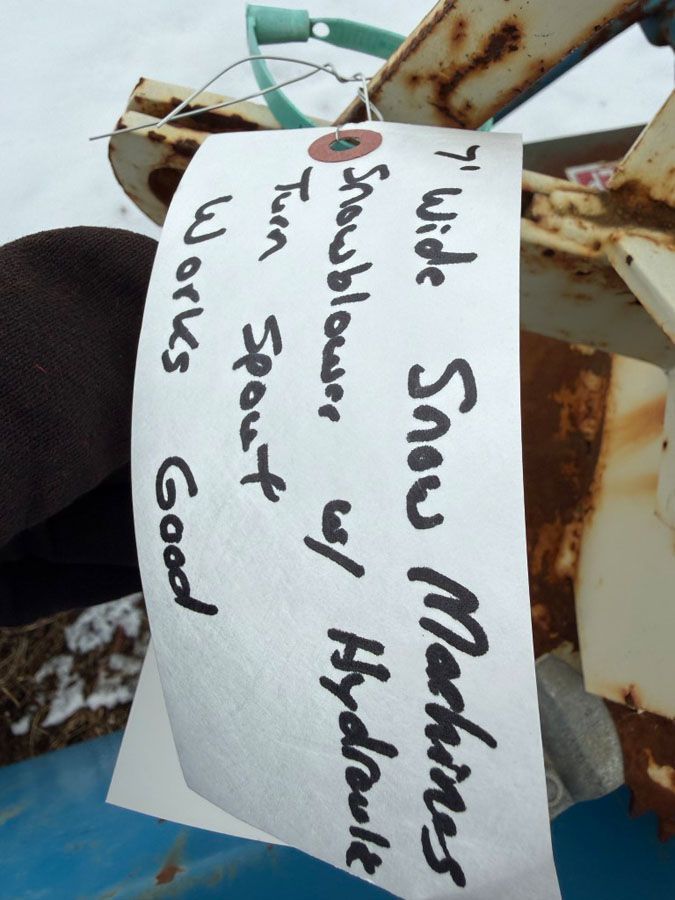 7' Wide Snow Machines
Snowblower w/ Hydraulic
Turn Spout
Works Good